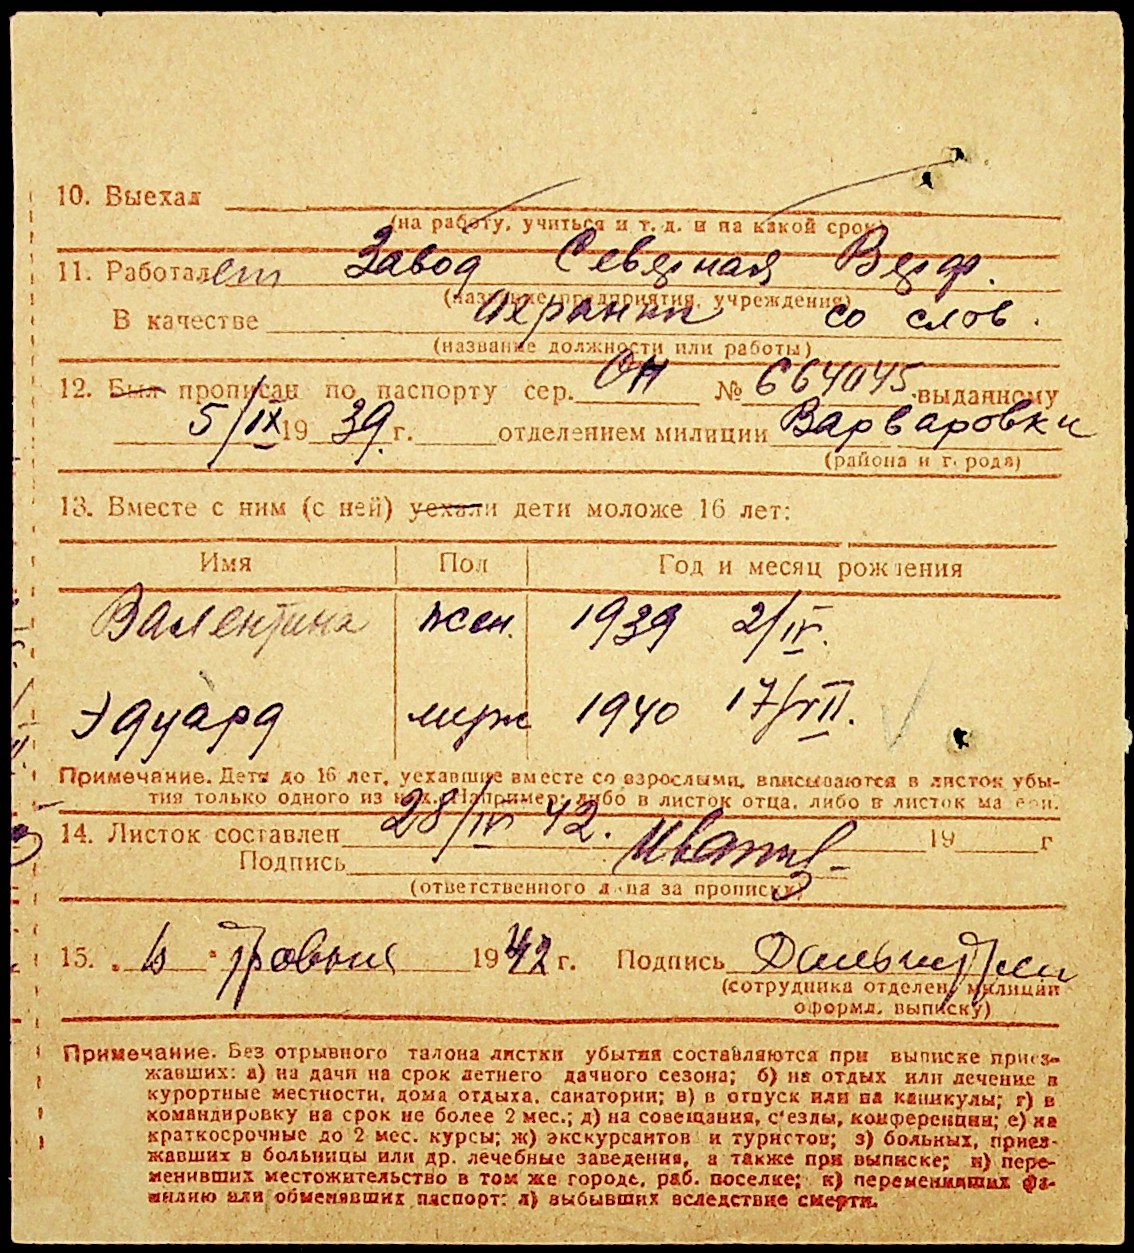 10. Выехал
(на работу, учиться и т. д. и на какой срок)
11. Работает Завод Северная Верф.
(название предприятия, учреждения)
В качестве охраник со слов.
(название должности или работы)
12. Был прописан по паспорту сер. ОН № 664045 выданному
5/IX 1939 г. отделением милиции Варваровки
(района и города)
13. Вместе с ним (с ней) уехали дети моложе 16 лет:
Имя Пол Год и месяц рождения
Валентина жен. 1939 2/IV.
Эдуард муж 1940 17/VII.
Примечание. Дети до 16 лет, уехавшие вместе со взрослыми, вписываются в листок убы-
тия только одного из них. Например: либо в листок отца, либо в листок матери.
14. Листок составлен 28/IV 42. 19 г
Подпись
(ответственного лица за прописку)
15. " " 1942 г. Подпись
(сотрудника отделен. милиции
оформл. выписку)
Примечание. Без отрывного талона листки убытия составляются при выписке приез-
жавших: а) на дачи на срок летнего дачного сезона; б) на отдых или лечение в
курортные местности, дома отдыха, санатории; в) в отпуск или на каникулы; г) в
командировку на срок не более 2 мес.; д) на совещания, с'езды, конференции; е) на
краткосрочные до 2 мес. курсы; ж) экскурсантов и туристов; з) больных, приез-
жавших в больницы или др. лечебные заведения, а также при выписке; и) пере-
менивших местожительство в том же городе, раб. поселке; к) переменивших фа-
милию или обменявших паспорт; л) выбывших вследствие смерти.